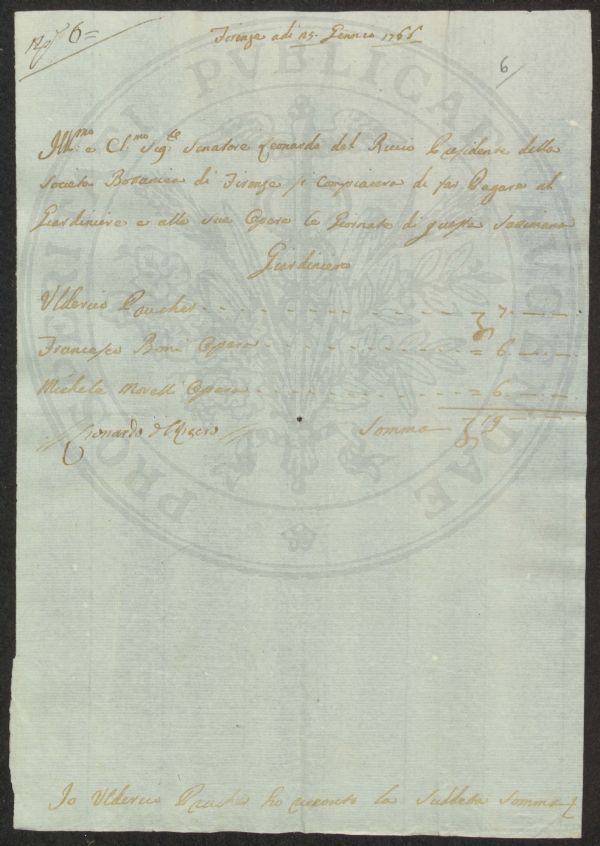 N.° 6=
Firenze adi 25. Gennaio 1766
6
Ill:mo e Cl:mo Sig:re Senatore Leonardo del Riccio Presidente della
Societa Bottanica di Firenze si compiacera di far Pagare al
Giardiniere e alle sue Opere le Giornate di questa Settimana
Giardiniere
Ulderico Prucher 7.
Francesco Boni Opera = 6
Michele Morelli Opera = 6
Leonardo del Riccio Somma 19
Io Ulderico Prucher ho ricevuto la Suddetta Somma
PROSPERITATI PVBLICAE AVGENDAE